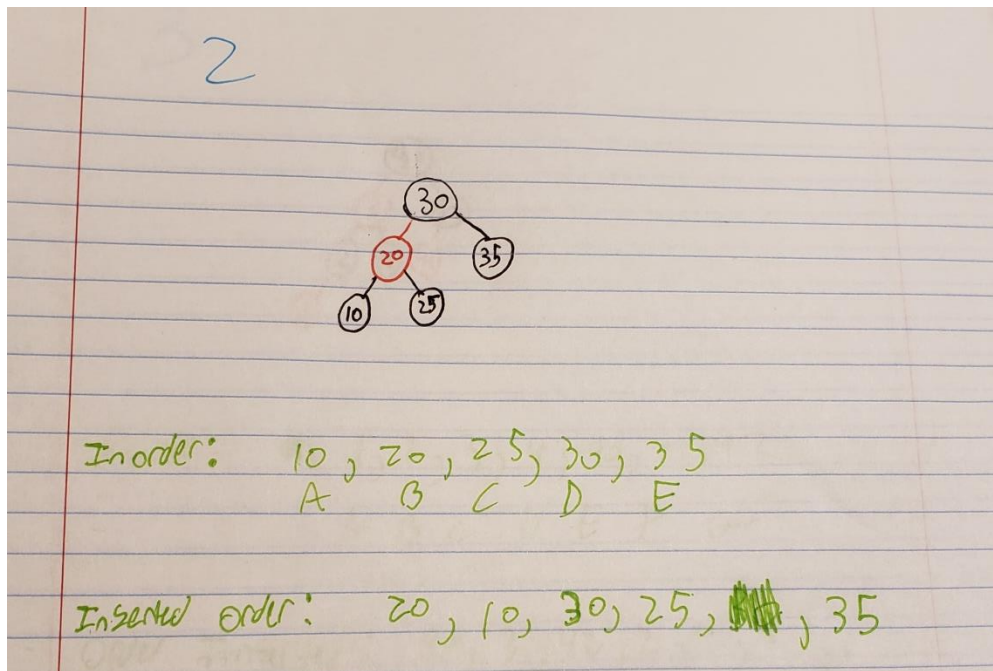 2
30
20 35
10 25
Inorder: 10, 20, 25, 30, 35
A B C D E
Inserted order: 20, 10, 30, 25, , 35